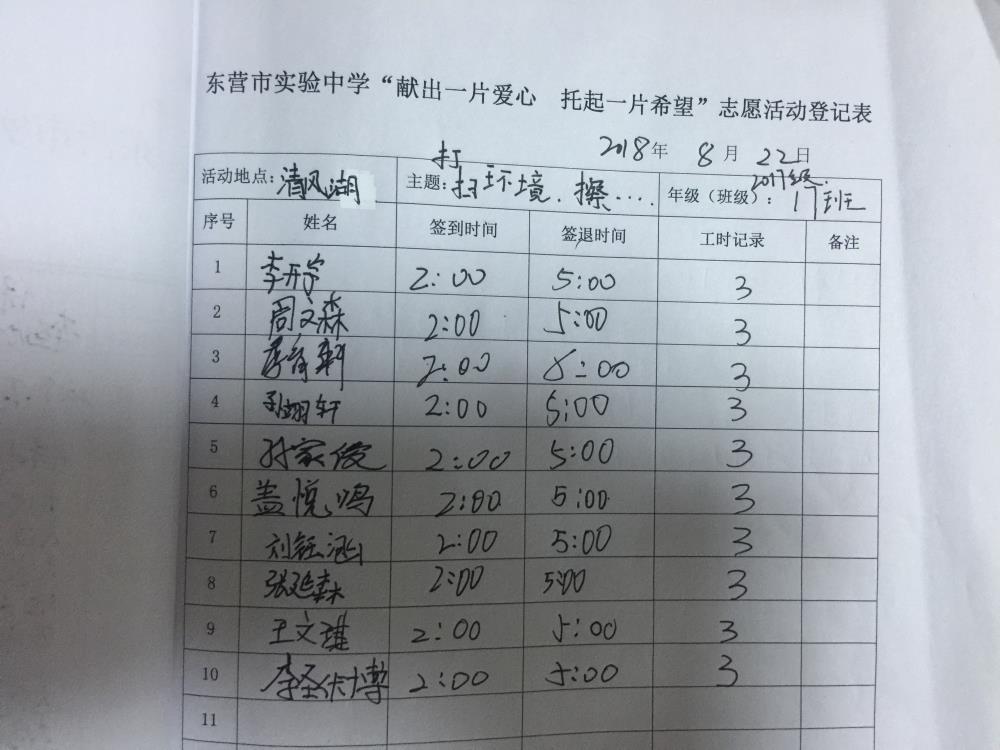 东营市实验中学“献出一片爱心 托起一片希望”志愿活动登记表
2018年 8月 22日
活动地点：清风湖 主题：打扫环境、擦…… 年级（班级）：2017级 17班
序号 姓名 签到时间 签退时间 工时记录 备注
1 李开 2:00 5:00 3
2 周文森 2:00 5:00 3
3 轩 2:00 5:00 3
4 孙翊轩 2:00 5:00 3
5 孙家俊 2:00 5:00 3
6 盖悦鸣 2:00 5:00 3
7 刘钰涵 2:00 5:00 3
8 张延森 2:00 5:00 3
9 王文 2:00 5:00 3
10 李圣 博 2:00 5:00 3
11